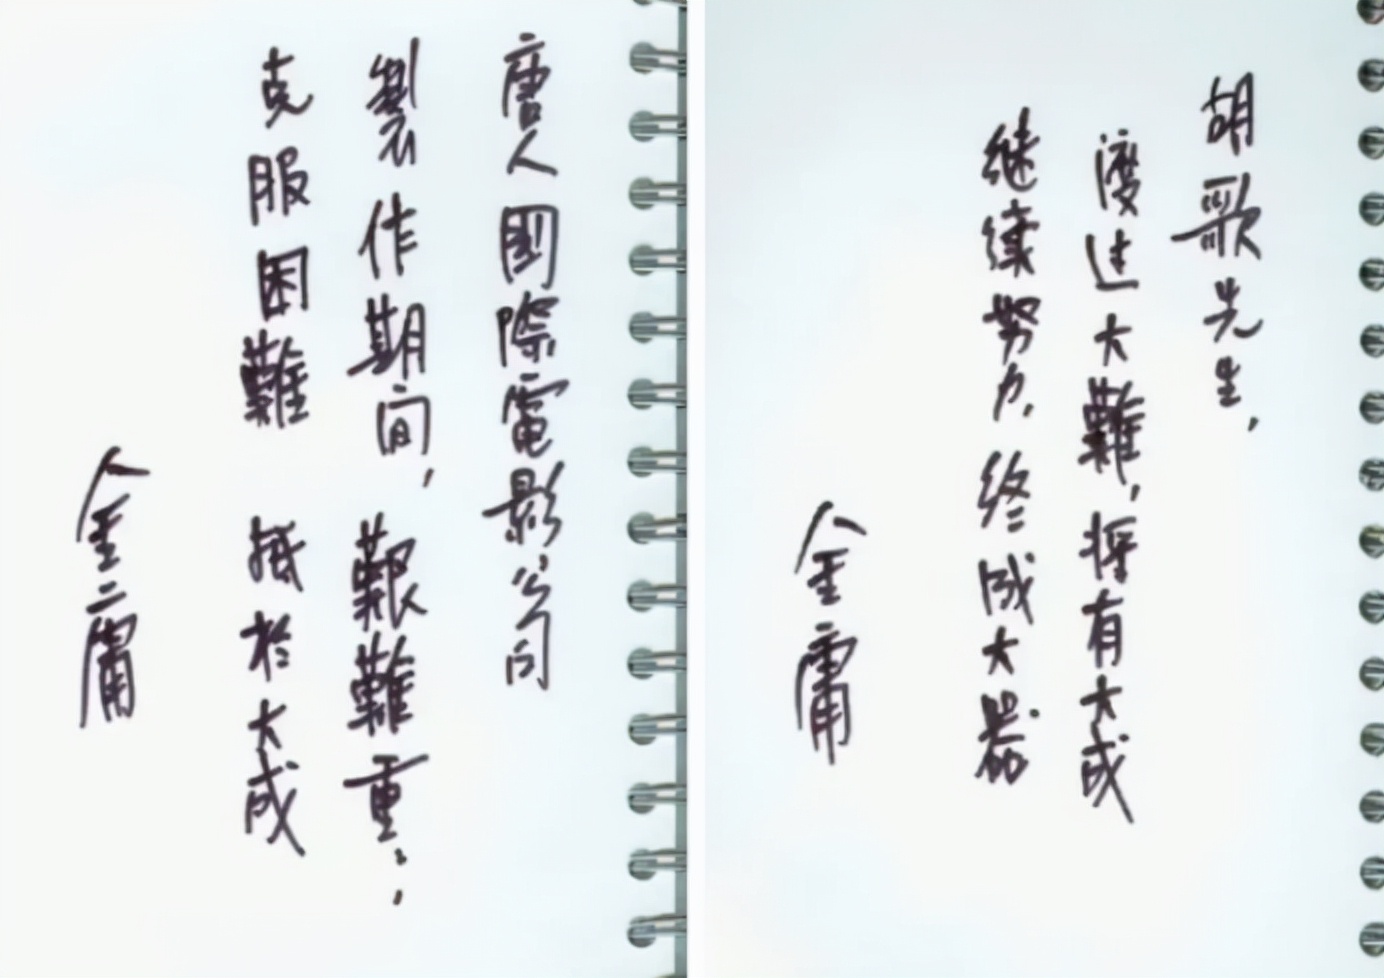 唐人國際電影公司
製作期间，艱難重重，
克服困難 抵於大成
金庸
胡歌先生，
渡过大難，将有大成
继续努力，终成大器
金庸